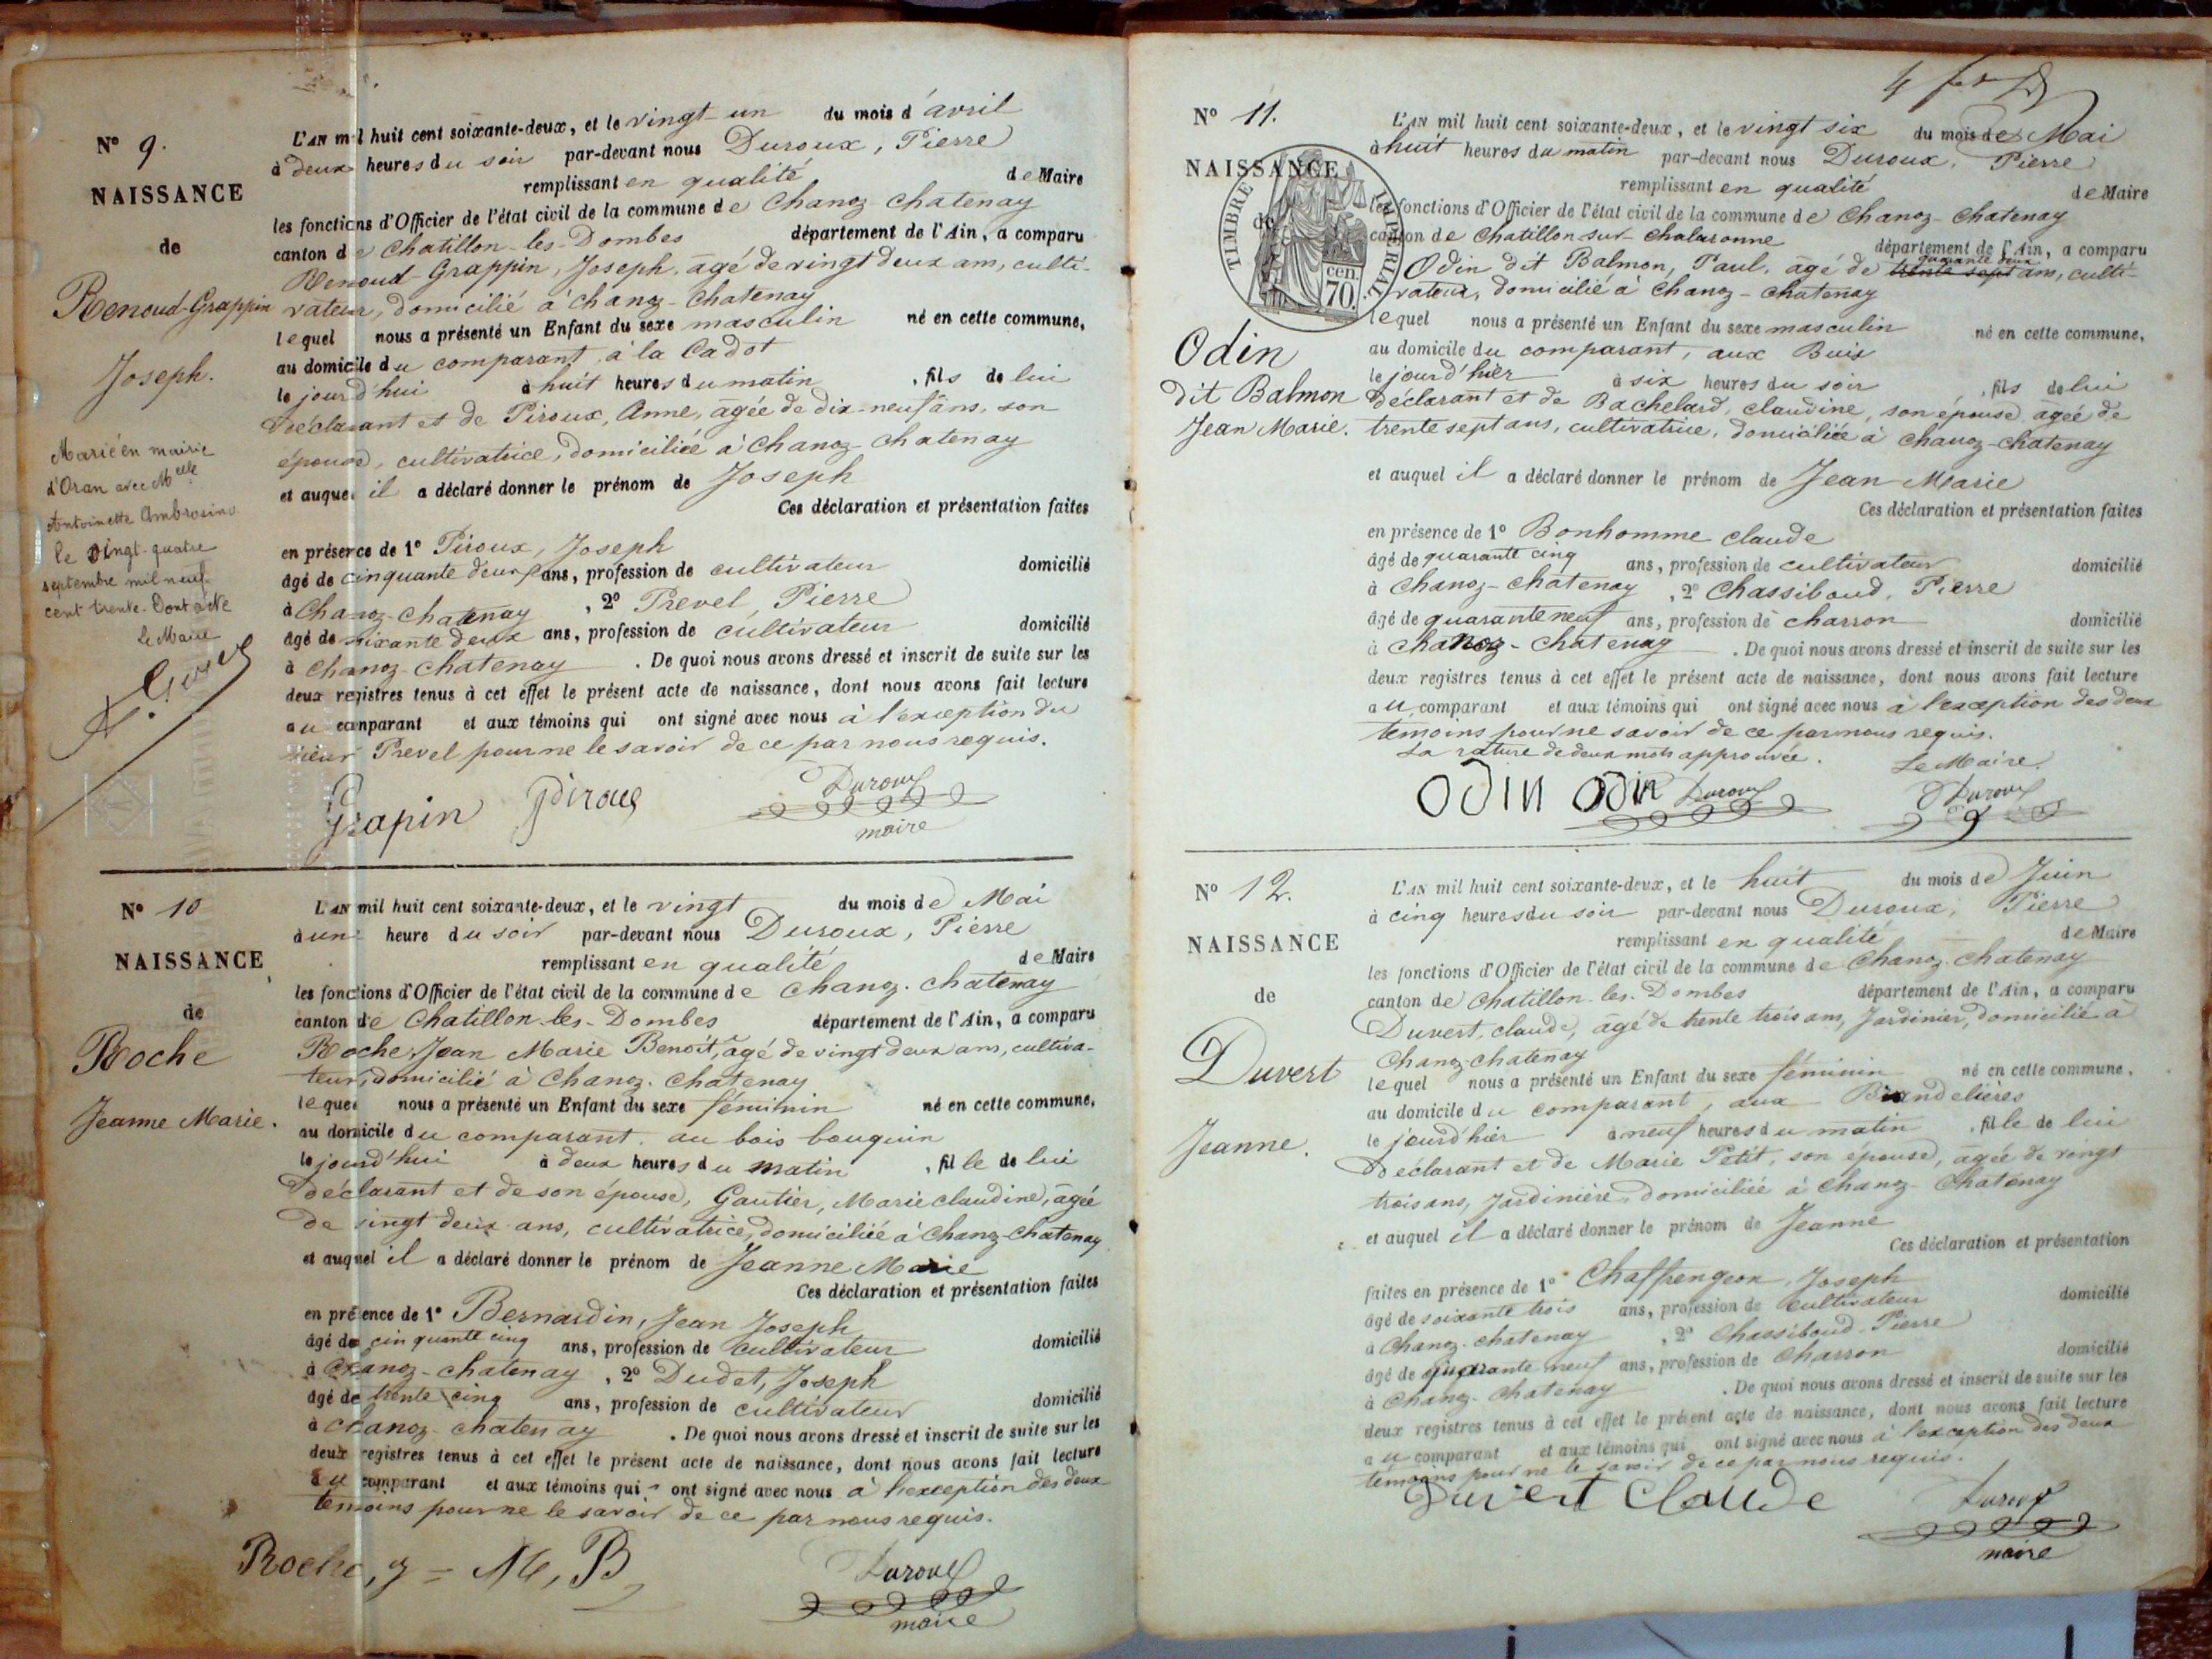 N° 9.
NAISSANCE
de
Renoud-Grappin
Joseph.
Marié en mairie
d'Oran avec Melle
Antoinette Ambrosino
le vingt-quatre
septembre mil neuf
cent trente. Dont acte
Le Maire
L'AN mil huit cent soixante-deux, et le vingt-un du mois d'avril
à deux heures du soir par-devant nous Duroux, Pierre
remplissant en qualité de Maire
les fonctions d'Officier de l'état civil de la commune de Chanoz-Chatenay
canton de Chatillon-les-Dombes département de l'Ain, a comparu
Renoud Grappin, Joseph, âgé de vingt deux ans, culti-
vateur, domicilié à Chanoz-Chatenay
lequel nous a présenté un Enfant du sexe masculin né en cette commune,
au domicile du comparant, à la Cadot
le jourd'hui à huit heures du matin, fils de lui
déclarant et de Piroux, Anne, âgée de dix-neuf ans, son
épouse, cultivatrice, domiciliée à Chanoz-Chatenay
et auquel il a déclaré donner le prénom de Joseph
Ces déclaration et présentation faites
en présence de 1° Piroux, Joseph
âgé de cinquante deux ans, profession de cultivateur domicilié
à Chanoz-Chatenay, 2° Prevel, Pierre
âgé de soixante deux ans, profession de cultivateur domicilié
à Chanoz-Chatenay. De quoi nous avons dressé et inscrit de suite sur les
deux registres tenus à cet effet le présent acte de naissance, dont nous avons fait lecture
au comparant et aux témoins qui ont signé avec nous à l'exception du
sieur Prevel pour ne le savoir de ce par nous requis.
Grapin Piroux Duroux
maire
N° 10
NAISSANCE
de
Roche
Jeanne Marie.
L'AN mil huit cent soixante-deux, et le vingt du mois de Mai
à une heure du soir par-devant nous Duroux, Pierre
remplissant en qualité de Maire
les fonctions d'Officier de l'état civil de la commune de Chanoz-Chatenay
canton de Chatillon-les-Dombes département de l'Ain, a comparu
Roche, Jean Marie Benoît, âgé de vingt deux ans, cultiva-
teur, domicilié à Chanoz-Chatenay
lequel nous a présenté un Enfant du sexe féminin né en cette commune,
au domicile du comparant, au bois bouquin
le jourd'hui à deux heures du matin, fille de lui
déclarant et de son épouse, Gautier, Marie Claudine, âgée
de vingt deux ans, cultivatrice, domiciliée à Chanoz-Chatenay
et auquel il a déclaré donner le prénom de Jeanne Marie
Ces déclaration et présentation faites
en présence de 1° Bernardin, Jean Joseph
âgé de cinquante cinq ans, profession de cultivateur domicilié
à Chanoz-Chatenay, 2° Dudet, Joseph
âgé de trente cinq ans, profession de cultivateur domicilié
à Chanoz-Chatenay. De quoi nous avons dressé et inscrit de suite sur les
deux registres tenus à cet effet le présent acte de naissance, dont nous avons fait lecture
au comparant et aux témoins qui ont signé avec nous à l'exception des deux
témoins pour ne le savoir de ce par nous requis.
Roche, J = M, B Duroux
maire
N° 11.
NAISSANCE
de
TIMBRE IMPERIAL
70 cen.
Odin
dit Balmon
Jean Marie.
L'AN mil huit cent soixante-deux, et le vingt six du mois de Mai
à huit heures du matin par-devant nous Duroux, Pierre
remplissant en qualité de Maire
les fonctions d'Officier de l'état civil de la commune de Chanoz-Chatenay
canton de Chatillon-sur-Chalaronne département de l'Ain, a comparu
quarante deux
Odin dit Balmon, Paul, âgé de trente sept ans, culti-
vateur, domicilié à Chanoz-Chatenay
lequel nous a présenté un Enfant du sexe masculin né en cette commune,
au domicile du comparant, aux Buis
le jourd'hier à six heures du soir, fils de lui
déclarant et de Bachelard, Claudine, son épouse âgée de
trente sept ans, cultivatrice, domiciliée à Chanoz-Chatenay
et auquel il a déclaré donner le prénom de Jean Marie
Ces déclaration et présentation faites
en présence de 1° Bonhomme Claude
âgé de quarante cinq ans, profession de cultivateur domicilié
à Chanoz-Chatenay, 2° Chassiboud, Pierre
âgé de quarante neuf ans, profession de charron domicilié
à Chanoz-Chatenay. De quoi nous avons dressé et inscrit de suite sur les
deux registres tenus à cet effet le présent acte de naissance, dont nous avons fait lecture
au comparant et aux témoins qui ont signé avec nous à l'exception des deux
témoins pour ne savoir de ce par nous requis.
La rature de deux mots approuvée. Le Maire.
Odin Odin Duroux Duroux
N° 12.
NAISSANCE
de
Duvert
Jeanne.
L'AN mil huit cent soixante-deux, et le huit du mois de Juin
à cinq heures du soir par-devant nous Duroux, Pierre
remplissant en qualité de Maire
les fonctions d'Officier de l'état civil de la commune de Chanoz-Chatenay
canton de Chatillon-les-Dombes département de l'Ain, a comparu
Duvert, Claude, âgé de trente trois ans, Jardinier, domicilié à
Chanoz-Chatenay
lequel nous a présenté un Enfant du sexe féminin né en cette commune,
au domicile du comparant, aux
le jourd'hier à neuf heures du matin, fille de lui
déclarant et de Marie Petit, son épouse, agée de vingt
trois ans, Jardinière, domiciliée à Chanoz-Chatenay
et auquel il a déclaré donner le prénom de Jeanne
Ces déclaration et présentation
faites en présence de 1° Chaffengeon, Joseph
âgé de soixante trois ans, profession de cultivateur domicilié
à Chanoz-Chatenay, 2° Chassiboud Pierre
âgé de quarante neuf ans, profession de Charron domicilié
à Chanoz-Chatenay. De quoi nous avons dressé et inscrit de suite sur les
deux registres tenus à cet effet le présent acte de naissance, dont nous avons fait lecture
au comparant et aux témoins qui ont signé avec nous à l'exception des deux
témoins pour ne le savoir de ce par nous requis.
Duvert Claude Duroux
maire